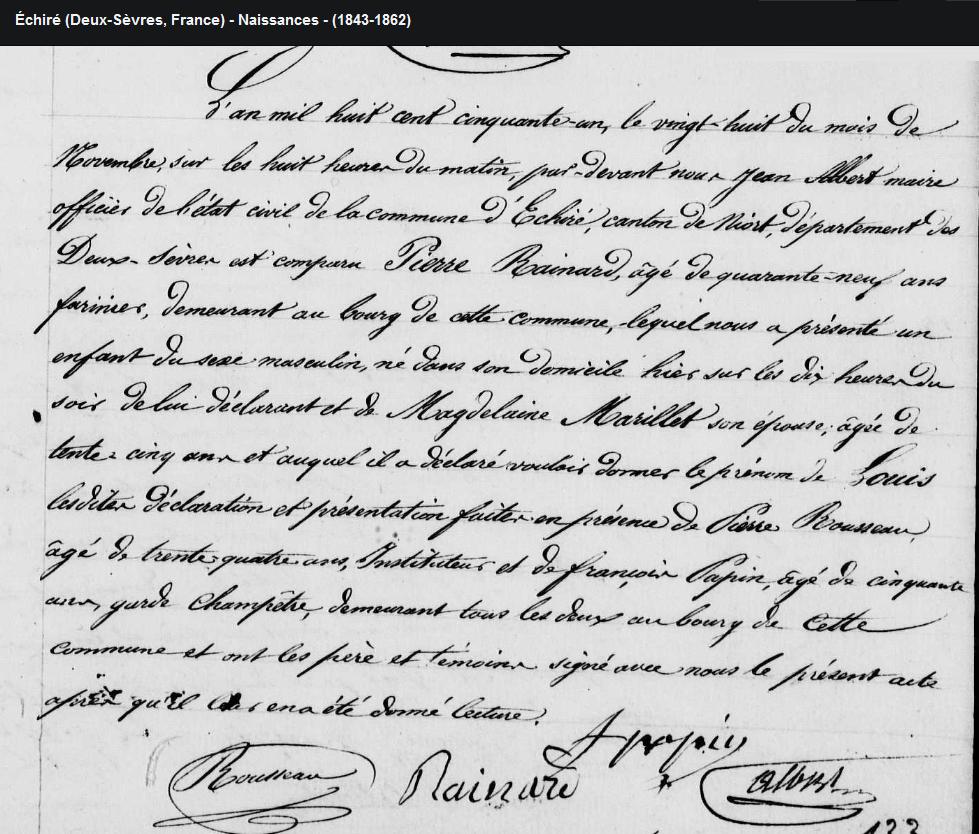 Échiré (Deux-Sèvres, France) - Naissances - (1843-1862)
L'an mil huit cent cinquante-un, le vingt-huit du mois de
Novembre, sur les huit heures du matin, par-devant nous Jean Albert maire
officier de l'état civil de la commune d'Echiré, canton de Niort, département des
Deux-Sèvres est comparu Pierre Rainard, âgé de quarante-neuf ans
farinier, demeurant au bourg de cette commune, lequel nous a présenté un
enfant du sexe masculin, né dans son domicile hier sur les dix heures du
soir de lui déclarant et de Magdelaine Marillet son épouse, âgée de
tente-cinq ans et auquel il a déclaré vouloir donner le prénom de Louis
lesdites déclaration et présentation faites en présence de Pierre Rousseau,
âgé de trente-quatre ans, Instituteur et de françois Papin, âgé de cinquante
ans, garde champêtre, demeurant tous les deux au bourg de cette
commune et ont les père et témoins signé avec nous le présent acte
après qu'il leur en a été donné lecture.
Rousseau Rainard f papin Albert